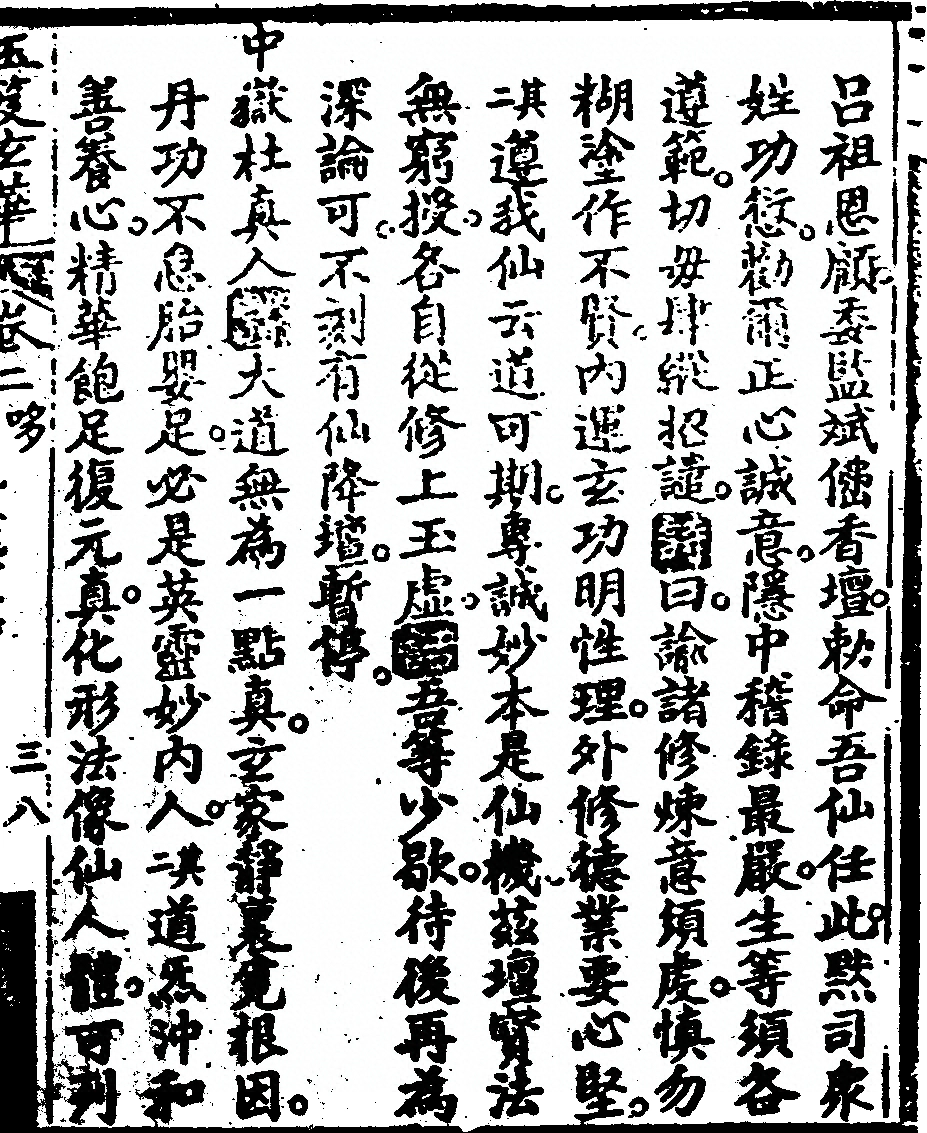 呂祖恩顧委監斌僊香壇勅命吾仙任此黙司衆
姓功愆勸爾正心誠意隱中稽錄最嚴生等須各
遵範切毋肆縱招譴詩曰諭諸修煉意須虔慎勿
糊塗作不賢內運玄功明性理外修德業要心堅
其二遵我仙云道可期專誠妙本是仙機茲壇寳法
無窮授各自從修上玉虛話吾等少歇待後再為
深論可不刻有仙降壇暫停
中嶽杜真人詩大道無為一點真玄家靜裏覓根因
丹功不怠胎嬰足必是英靈妙內人其二道炁沖和
善養心精華飽足復元真化形法像仙人體可列
玉笈玄華 卷二 哆 三八